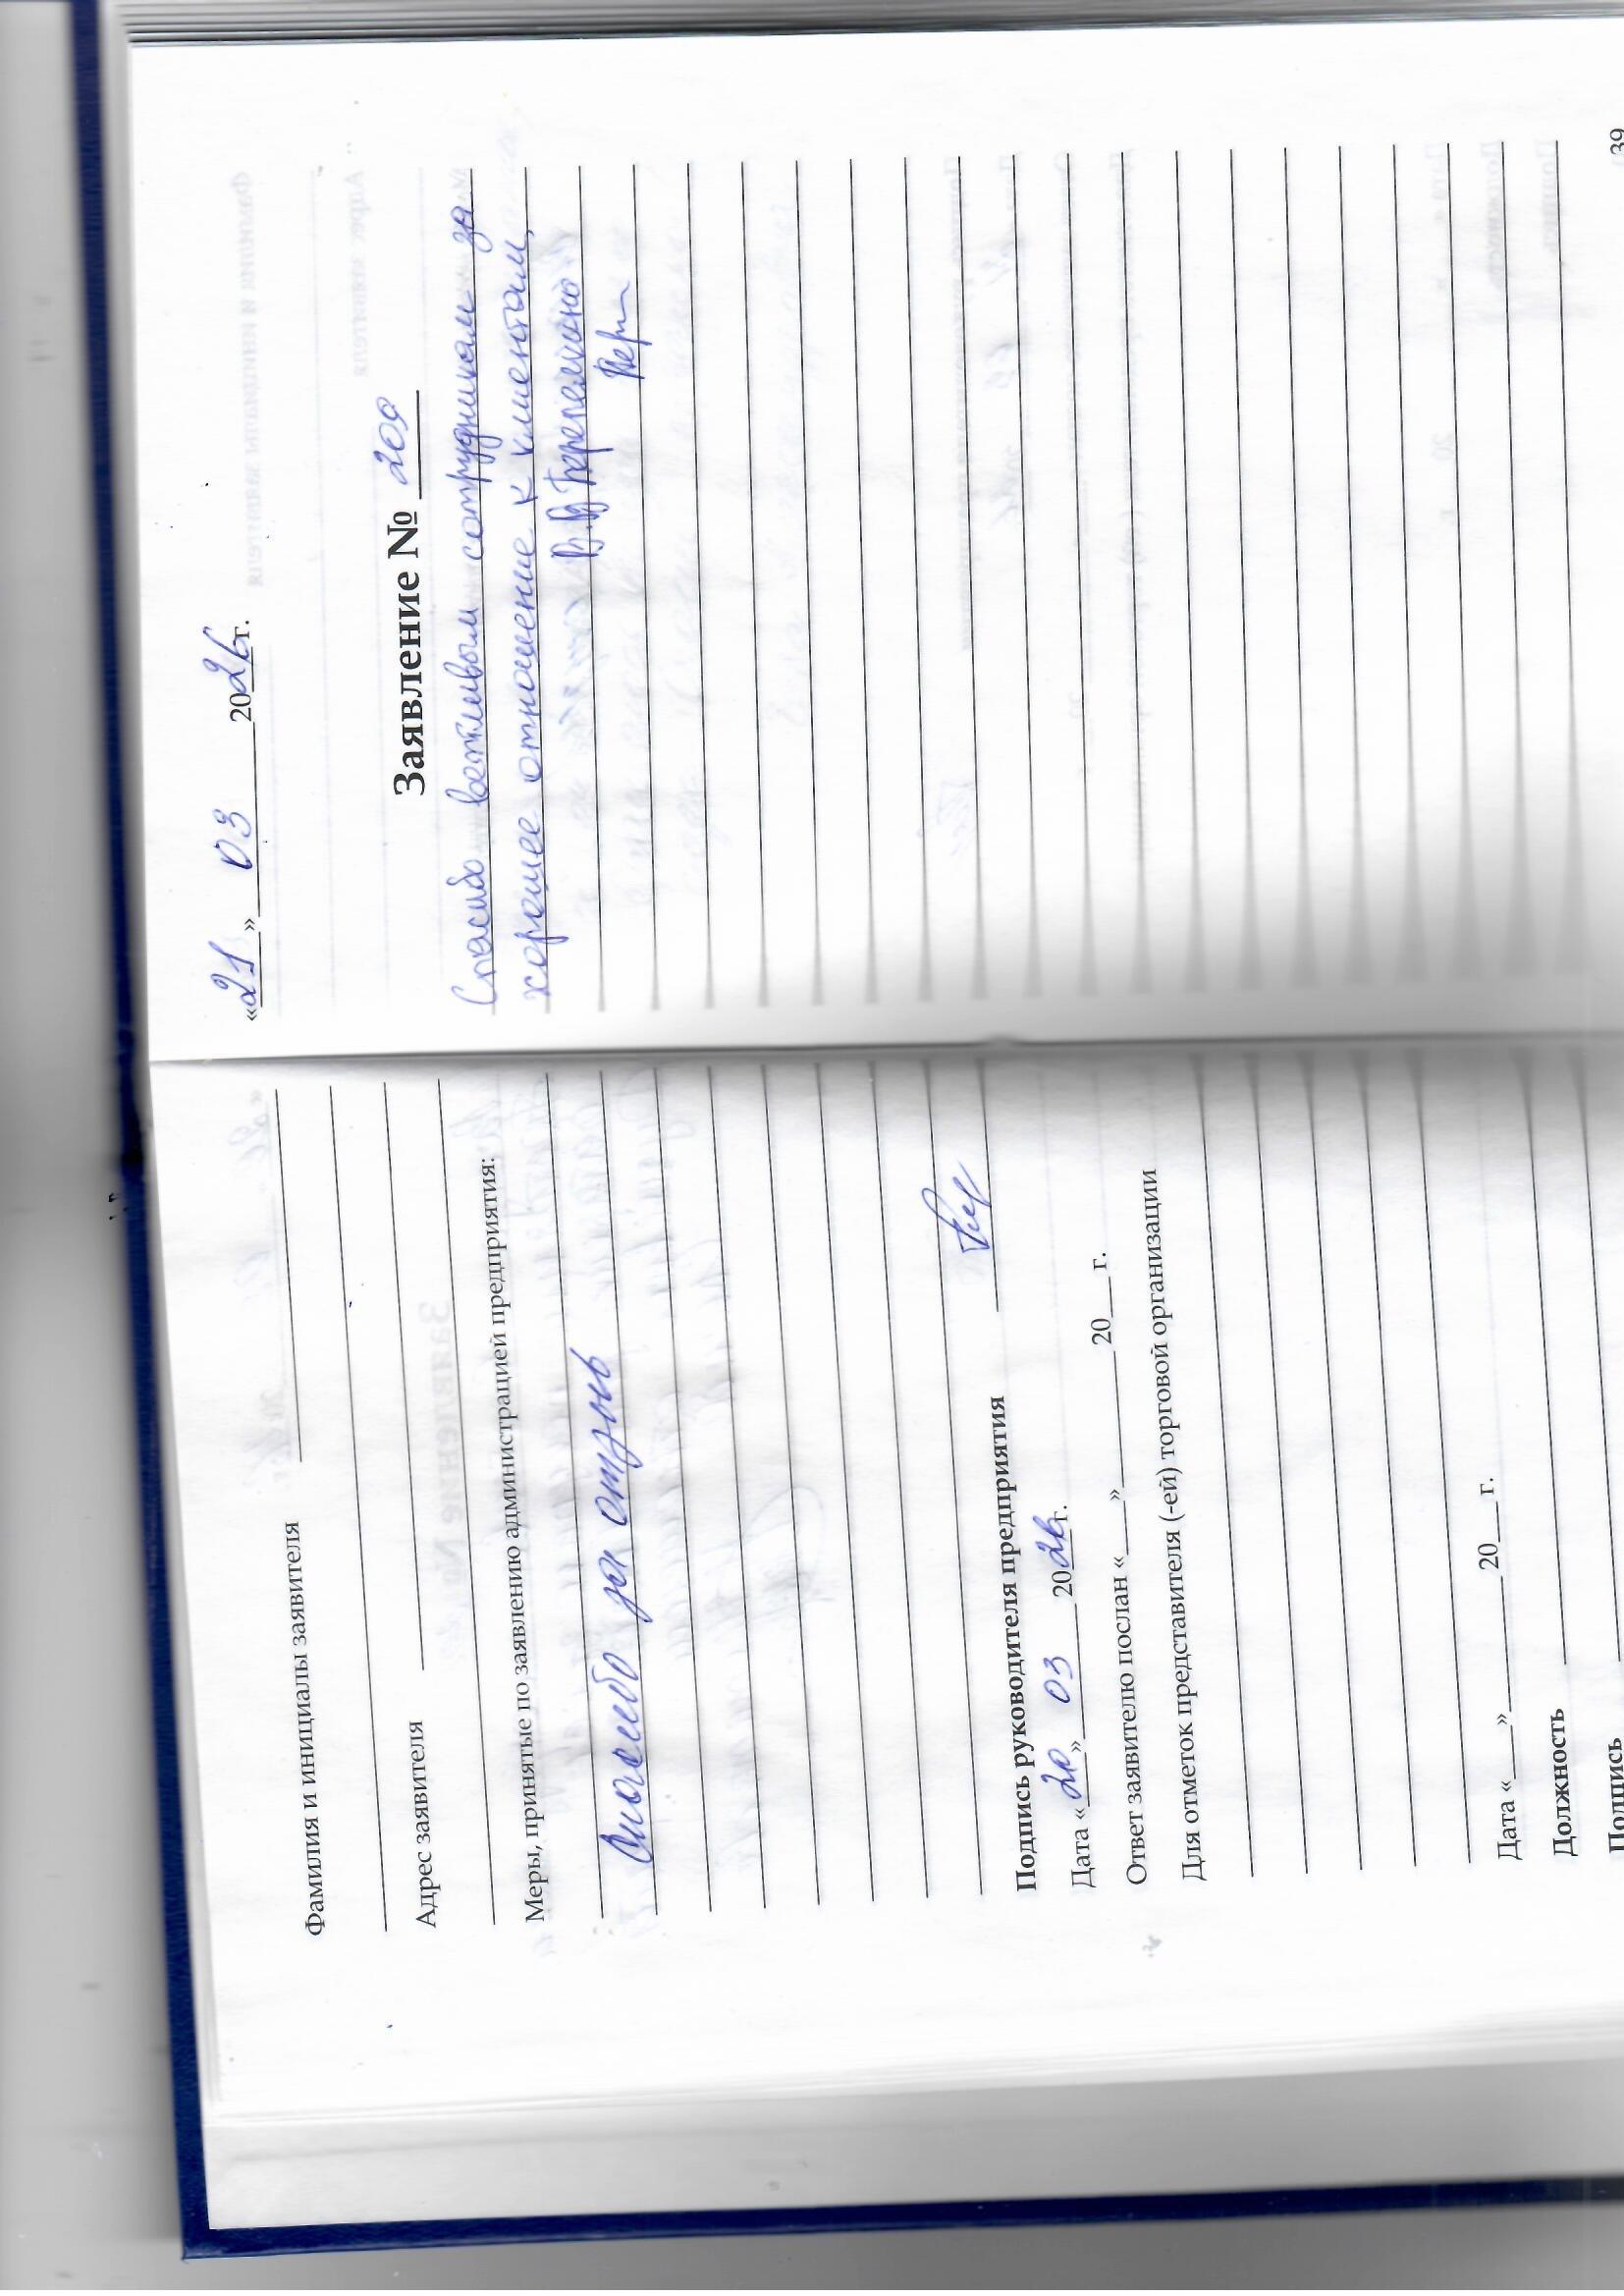 Фамилия и инициалы заявителя
Адрес заявителя
Меры, принятые по заявлению администрацией предприятия:
Спасибо за отзыв
Подпись руководителя предприятия
Дата «20» 03 2026г.
Ответ заявителю послан «___» 20__г.
Для отметок представителя (-ей) торговой организации
Дата «___» 20__г.
Должность
Подпись
«21» 03 2026г.
Заявление № 209
Спасибо вежливым сотрудникам за
хорошее отношение к клиентам,
39